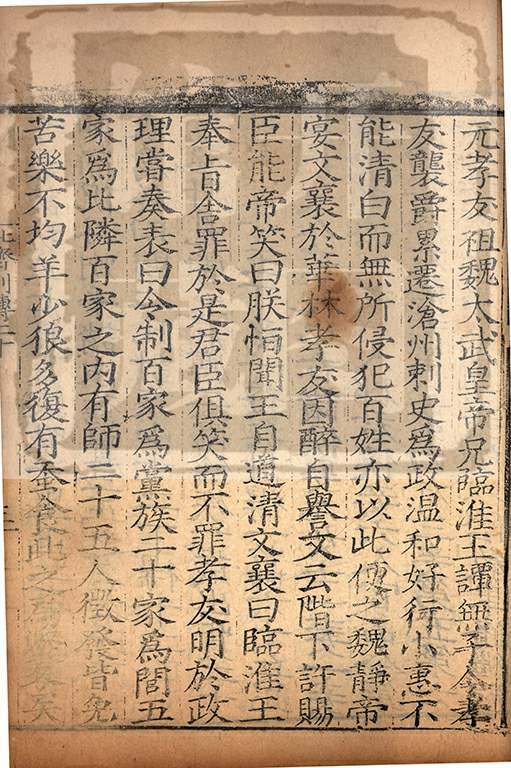 元孝友祖魏太武皇帝兄臨淮王譚無子令孝
友襲爵累遷滄州刺史爲政温和好行小惠不
能清白而無所侵犯百姓亦以此便之魏靜帝
宴文襄於華林孝友因醉自譽又云陛下許賜
臣能帝笑曰朕恒聞王自道清文襄曰臨淮王
奉旨舍罪於是君臣俱笑而不罪孝友明於政
理嘗奏表曰令制百家爲黨族二十家爲閭五
家爲比隣百家之内有師二十五人徵發皆免
苦樂不均羊少狼多復有蚕食此之爲矣
北齊列傳二十